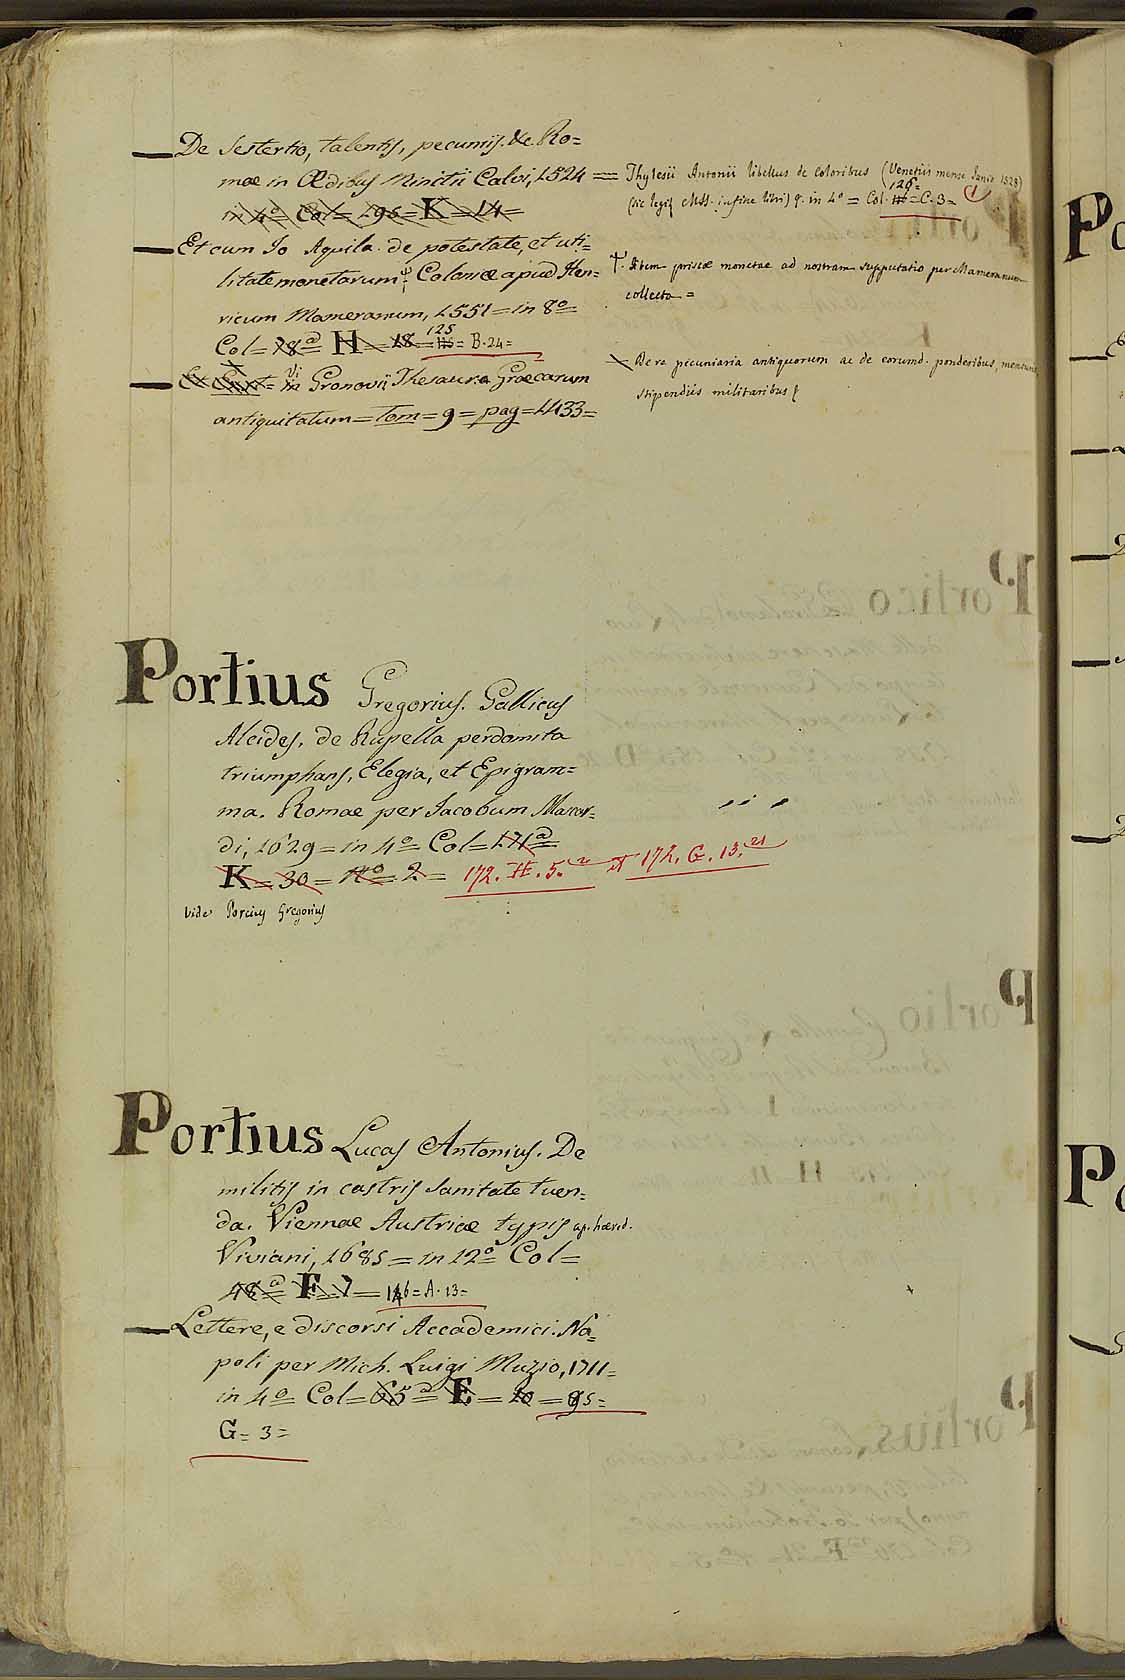 De Sestertio, talentis, pecuniis. &c. Ro=
mae in Œdibus Minitii Calvi, 1524 =
in 4º Col = 196 = K = 14 =
Thylesii Antonii libellus de Coloribus (Venetiis mense Junio 1528)
(sic legit MSS. in fine libri) q. in 4º = Col. 126 = C. 3 =
Et cum Io Aquila. de potestate, et uti=
litate monetarum † Coloniae apud Hen=
ricum Mameranum, 1551 = in 8º
Col = 78ª H = 18 = 125 = B. 24 =
†. Item priscae monetae ad nostram supputatio per Mameranum
collecta =
Vi
in Gronovii Thesauro Graecarum
antiquitatum = Tom = 9 = pag = 1433 =
De re pecuniaria antiquorum ac de eorumd. ponderibus, mensuris
stipendiis militaribus
Portius Gregorius. Gallicus
Alcides, de Rupella perdomita
triumphans, Elegia, et Epigram=
ma. Romae per Jacobum Mascar=
di, 1629 = in 4º Col = 171ª
K = 30 = Nº = 2 = 172. H. 5.21 et 172. G. 13.21
vide Porcius Gregorius
Portius Lucas Antonius. De
militis in castris Sanitate tuen=
da. Viennae Austriae typis ap. haered.
Viviani, 1685 = in 12º Col =
48ª F = 7 = 146 = A. 13 =
Lettere, e discorsi Accademici. Na=
poli per Mich. Luigi Muzio, 1711 =
in 4º Col = 65ª = E = 10 = 95 =
G = 3 =